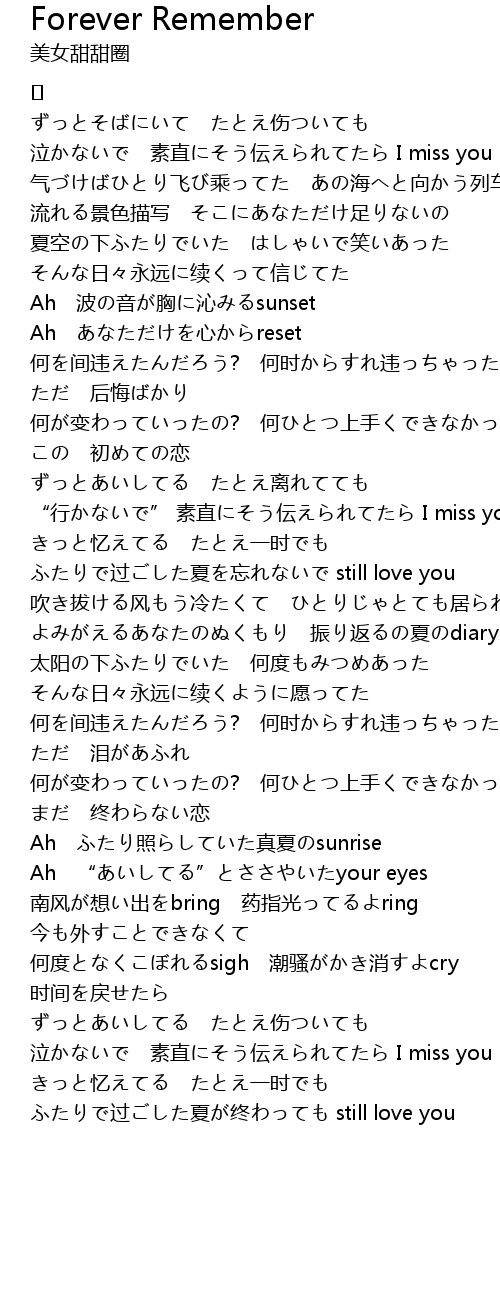 Forever Remember
美女甜甜圈
[]
ずっとそばにいて　たとえ伤ついても
泣かないで　素直にそう伝えられてたら I miss you
气づけばひとり飞び乘ってた　あの海へと向かう列车
流れる景色描写　そこにあなただけ足りないの
夏空の下ふたりでいた　はしゃいで笑いあった
そんな日々永远に续くって信じてた
Ah　波の音が胸に沁みるsunset
Ah　あなただけを心からreset
何を间违えたんだろう?　何时からすれ违っちゃった
ただ　后悔ばかり
何が变わっていったの?　何ひとつ上手くできなかっ
この　初めての恋
ずっとあいしてる　たとえ离れてても
“行かないで” 素直にそう伝えられてたら I miss yo
きっと忆えてる　たとえ一时でも
ふたりで过ごした夏を忘れないで still love you
吹き拔ける风もう冷たくて　ひとりじゃとても居られ
よみがえるあなたのぬくもり　振り返るの夏のdiary
太阳の下ふたりでいた　何度もみつめあった
そんな日々永远に续くように愿ってた
何を间违えたんだろう?　何时からすれ违っちゃった
ただ　泪があふれ
何が变わっていったの?　何ひとつ上手くできなかっ
まだ　终わらない恋
Ah　ふたり照らしていた真夏のsunrise
Ah　“あいしてる”とささやいたyour eyes
南风が想い出をbring　药指光ってるよring
今も外すことできなくて
何度となくこぼれるsigh　潮骚がかき消すよcry
时间を戻せたら
ずっとあいしてる　たとえ伤ついても
泣かないで　素直にそう伝えられてたら I miss you
きっと忆えてる　たとえ一时でも
ふたりで过ごした夏が终わっても still love you